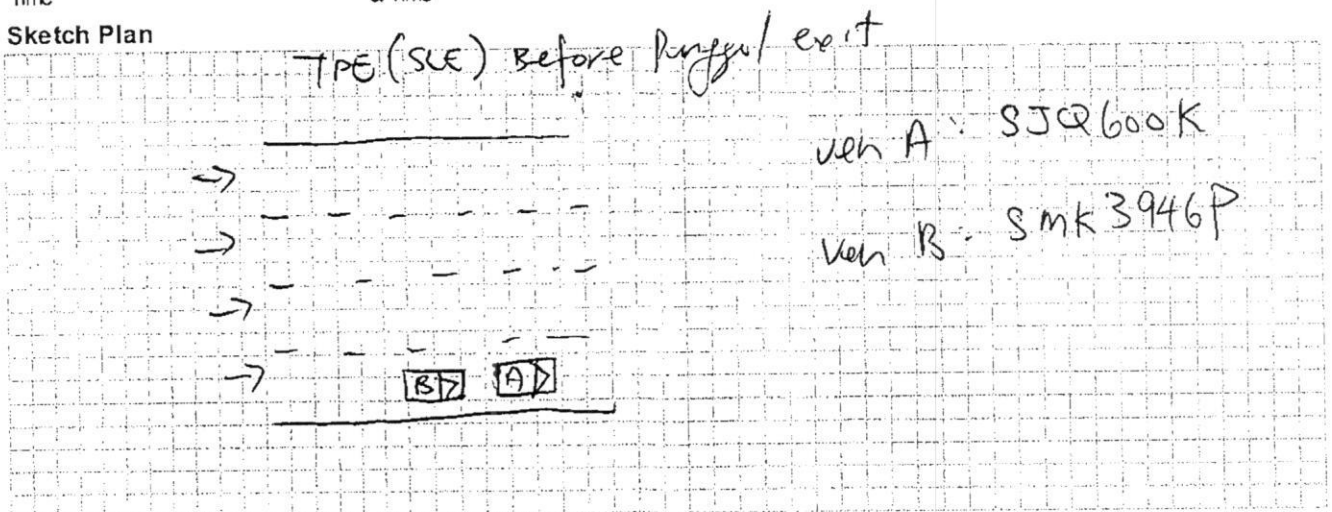 Sketch Plan
TPE (SLE) Before Punggol exit
veh A : SJQ600K
Veh B : SMK3946P
B A